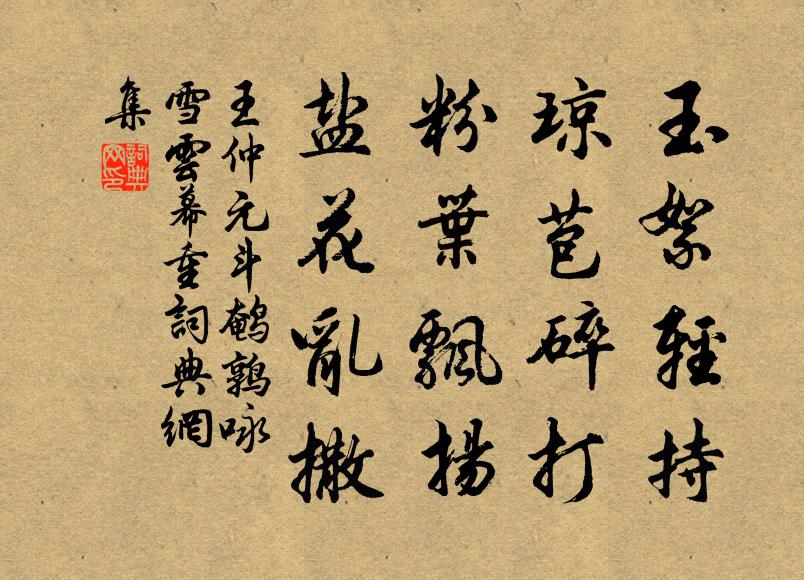 玉絮輕持
琼苞碎打
粉葉飄揚
盐花亂撒
王仲元斗鹌鹑咏
雪雲幕重詞典網
集
詞典网印